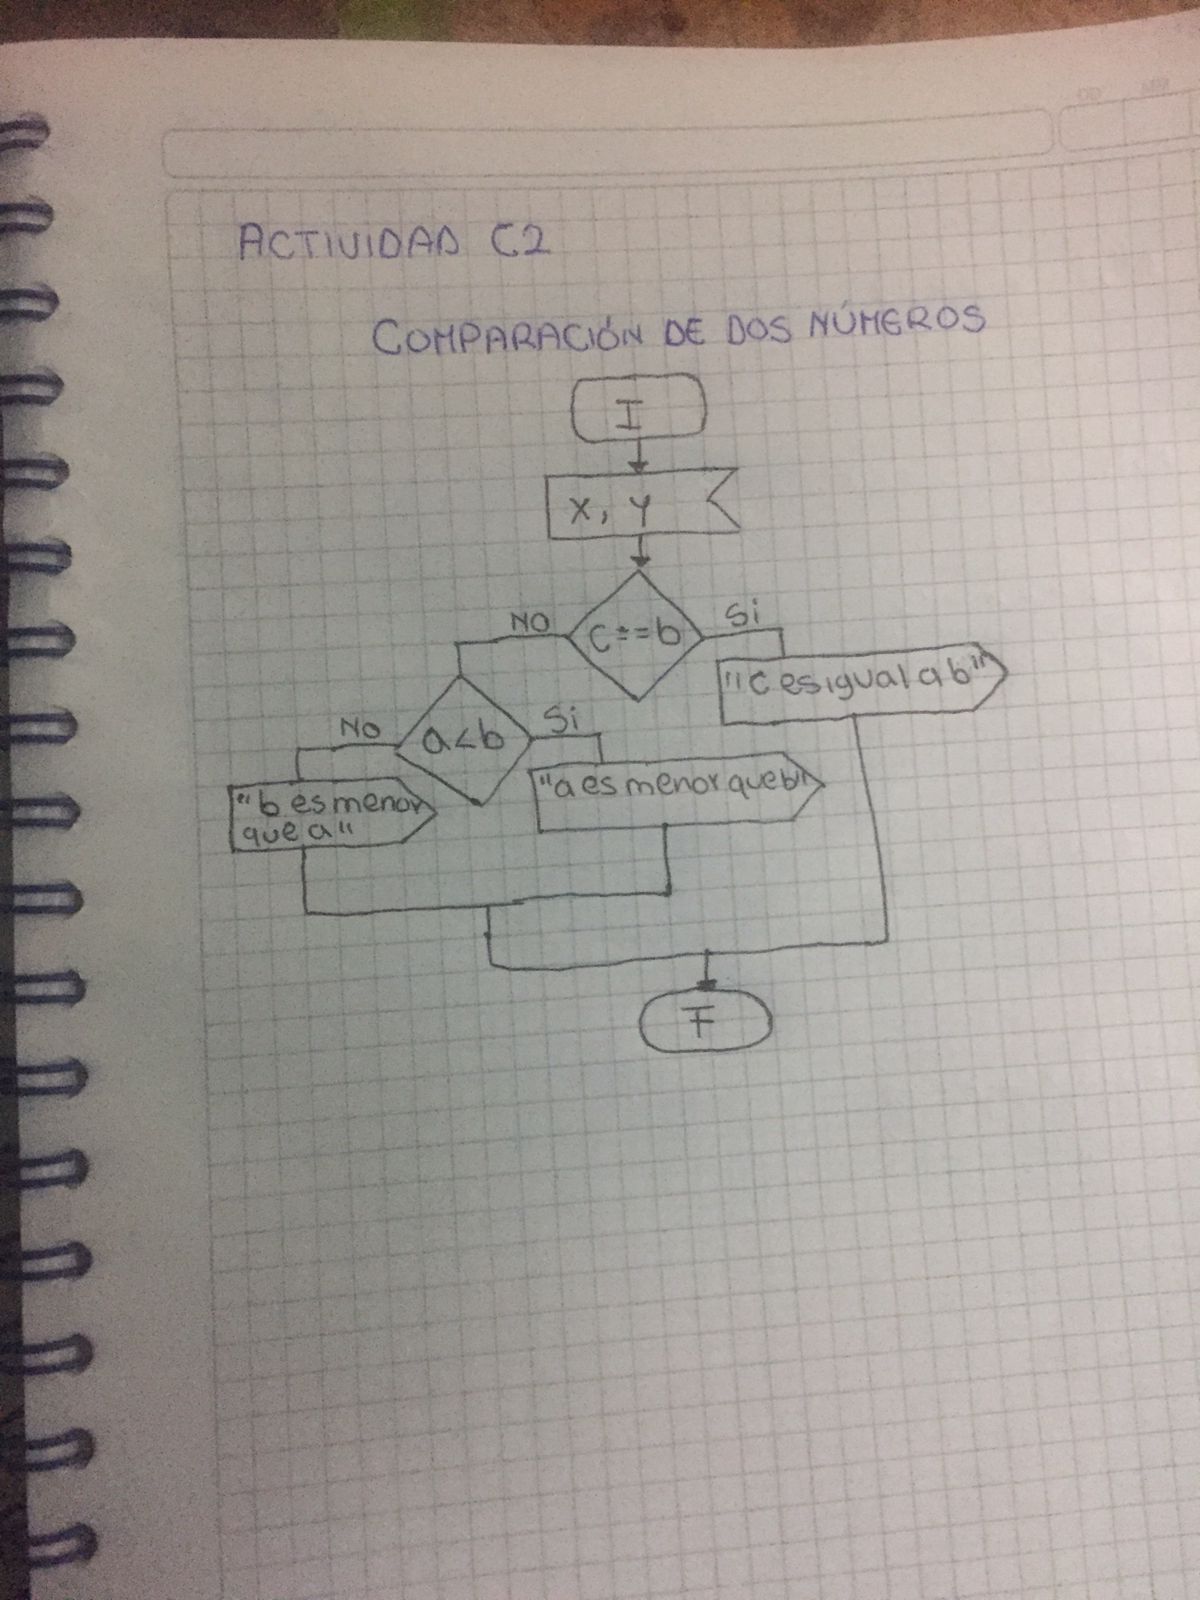 ACTIVIDAD C2
COMPARACIÓN DE DOS NÚMEROS
I
X, Y
NO
C==b
Si
"C es igual a b"
No
a<b
Si
"b es menor
que a"
"a es menor que b"
F